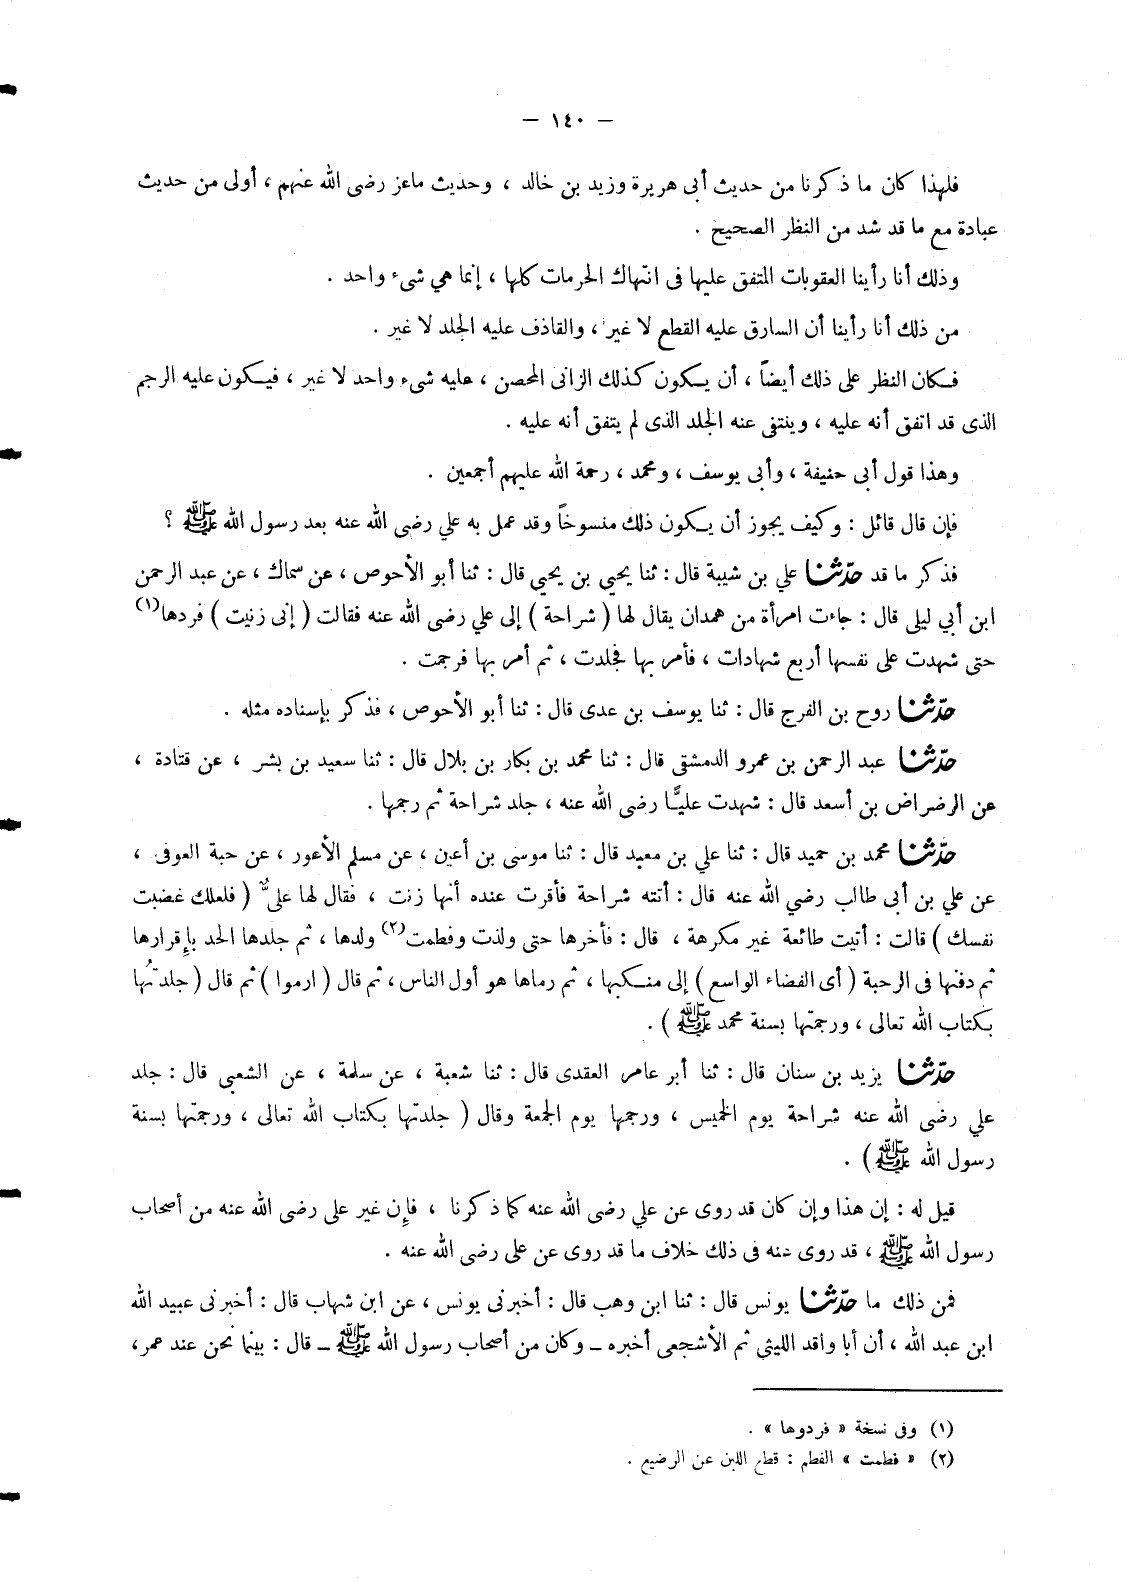 — ١٤٠ —
فلهذا كان ما ذكرنا من حديث أبى هريرة وزيد بن خالد ، وحديث ماعز رضى الله عنهم ، أولى من حديث
عبادة مع ما قد شد من النظر الصحيح .
وذلك أنا رأينا العقوبات المتفق عليها فى انتهاك الحرمات كلها ، إنما هي شىء واحد .
من ذلك أنا رأينا أن السارق عليه القطع لا غير ، والقاذف عليه الجلد لا غير .
فكان النظر على ذلك أيضاً ، أن يكون كذلك الزانى المحصن ، عليه شىء واحد لا غير ، فيكون عليه الرجم
الذى قد اتفق أنه عليه ، وينتفى عنه الجلد الذى لم يتفق أنه عليه .
وهذا قول أبى حنيفة ، وأبى يوسف ، ومحمد ، رحمة الله عليهم أجمعين .
فإن قال قائل : وكيف يجوز أن يكون ذلك منسوخاً وقد عمل به علي رضى الله عنه بعد رسول الله ﷺ ؟
فذكر ما قد حدّثنا علي بن شيبة قال : ثنا يحيى بن يحيي قال : ثنا أبو الأحوص ، عن سماك ، عن عبد الرحمن
ابن أبي ليلى قال : جاءت امرأة من همدان يقال لها ( شراحة ) إلى علي رضى الله عنه فقالت ( إنى زنيت ) فردها(١)
حتى شهدت على نفسها أربع شهادات ، فأمر بها فجلدت ، ثم أمر بها فرجمت .
حدّثنا روح بن الفرج قال : ثنا يوسف بن عدى قال : ثنا أبو الأحوص ، فذكر بإسناده مثله .
حدّثنا عبد الرحمن بن عمرو الدمشقى قال : ثنا محمد بن بكار بن بلال قال : ثنا سعيد بن بشر ، عن قتادة ،
عن الرضراض بن أسعد قال : شهدت عليًّا رضى الله عنه ، جلد شراحة ثم رجمها .
حدّثنا محمد بن حميد قال : ثنا علي بن معبد قال : ثنا موسى بن أعين ، عن مسلم الأعور ، عن حبة العوفى ،
عن علي بن أبى طالب رضي الله عنه قال : أتته شراحة فأقرت عنده أنها زنت ، فقال لها علىٌّ ( فلعلك غضبت
نفسك ) قالت : أتيت طائعة غير مكرهة ، قال : فأخرها حتى ولذت وفطمت(٢) ولدها ، ثم جلدها الحد بإقرارها
ثم دفنها فى الرحبة ( أى الفضاء الواسع ) إلى منكبها ، ثم رماها هو أول الناس ، ثم قال ( ارموا ) ثم قال ( جلدتُها
بكتاب الله تعالى ، ورجمتها بسنة محمد ﷺ ) .
حدّثنا يزيد بن سنان قال : ثنا أبر عامر العقدى قال : ثنا شعبة ، عن سلمة ، عن الشعبى قال : جلد
علي رضى الله عنه شراحة يوم الخميس ، ورجمها يوم الجمعة وقال ( جلدتها بكتاب الله تعالى ، ورجمتها بسنة
رسول الله ﷺ ) .
قيل له : إن هذا وإن كان قد روى عن علي رضى الله عنه كما ذكرنا ، فإن غير على رضى الله عنه من أصحاب
رسول الله ﷺ ، قد روى عنه فى ذلك خلاف ما قد روى عن على رضى الله عنه .
فمن ذلك ما حدّثنا يونس قال : ثنا ابن وهب قال : أخبرنى يونس ، عن ابن شهاب قال : أخبرنى عبيد الله
ابن عبد الله ، أن أبا واقد الليثى ثم الأشجعى أخبره ــ وكان من أصحاب رسول الله ﷺ ــ قال : بينما نحن عند عمر ،
(١) وفى نسخة « فردوها » .
(٢) « فطمت » الفطم : قطع اللبن عن الرضيع .